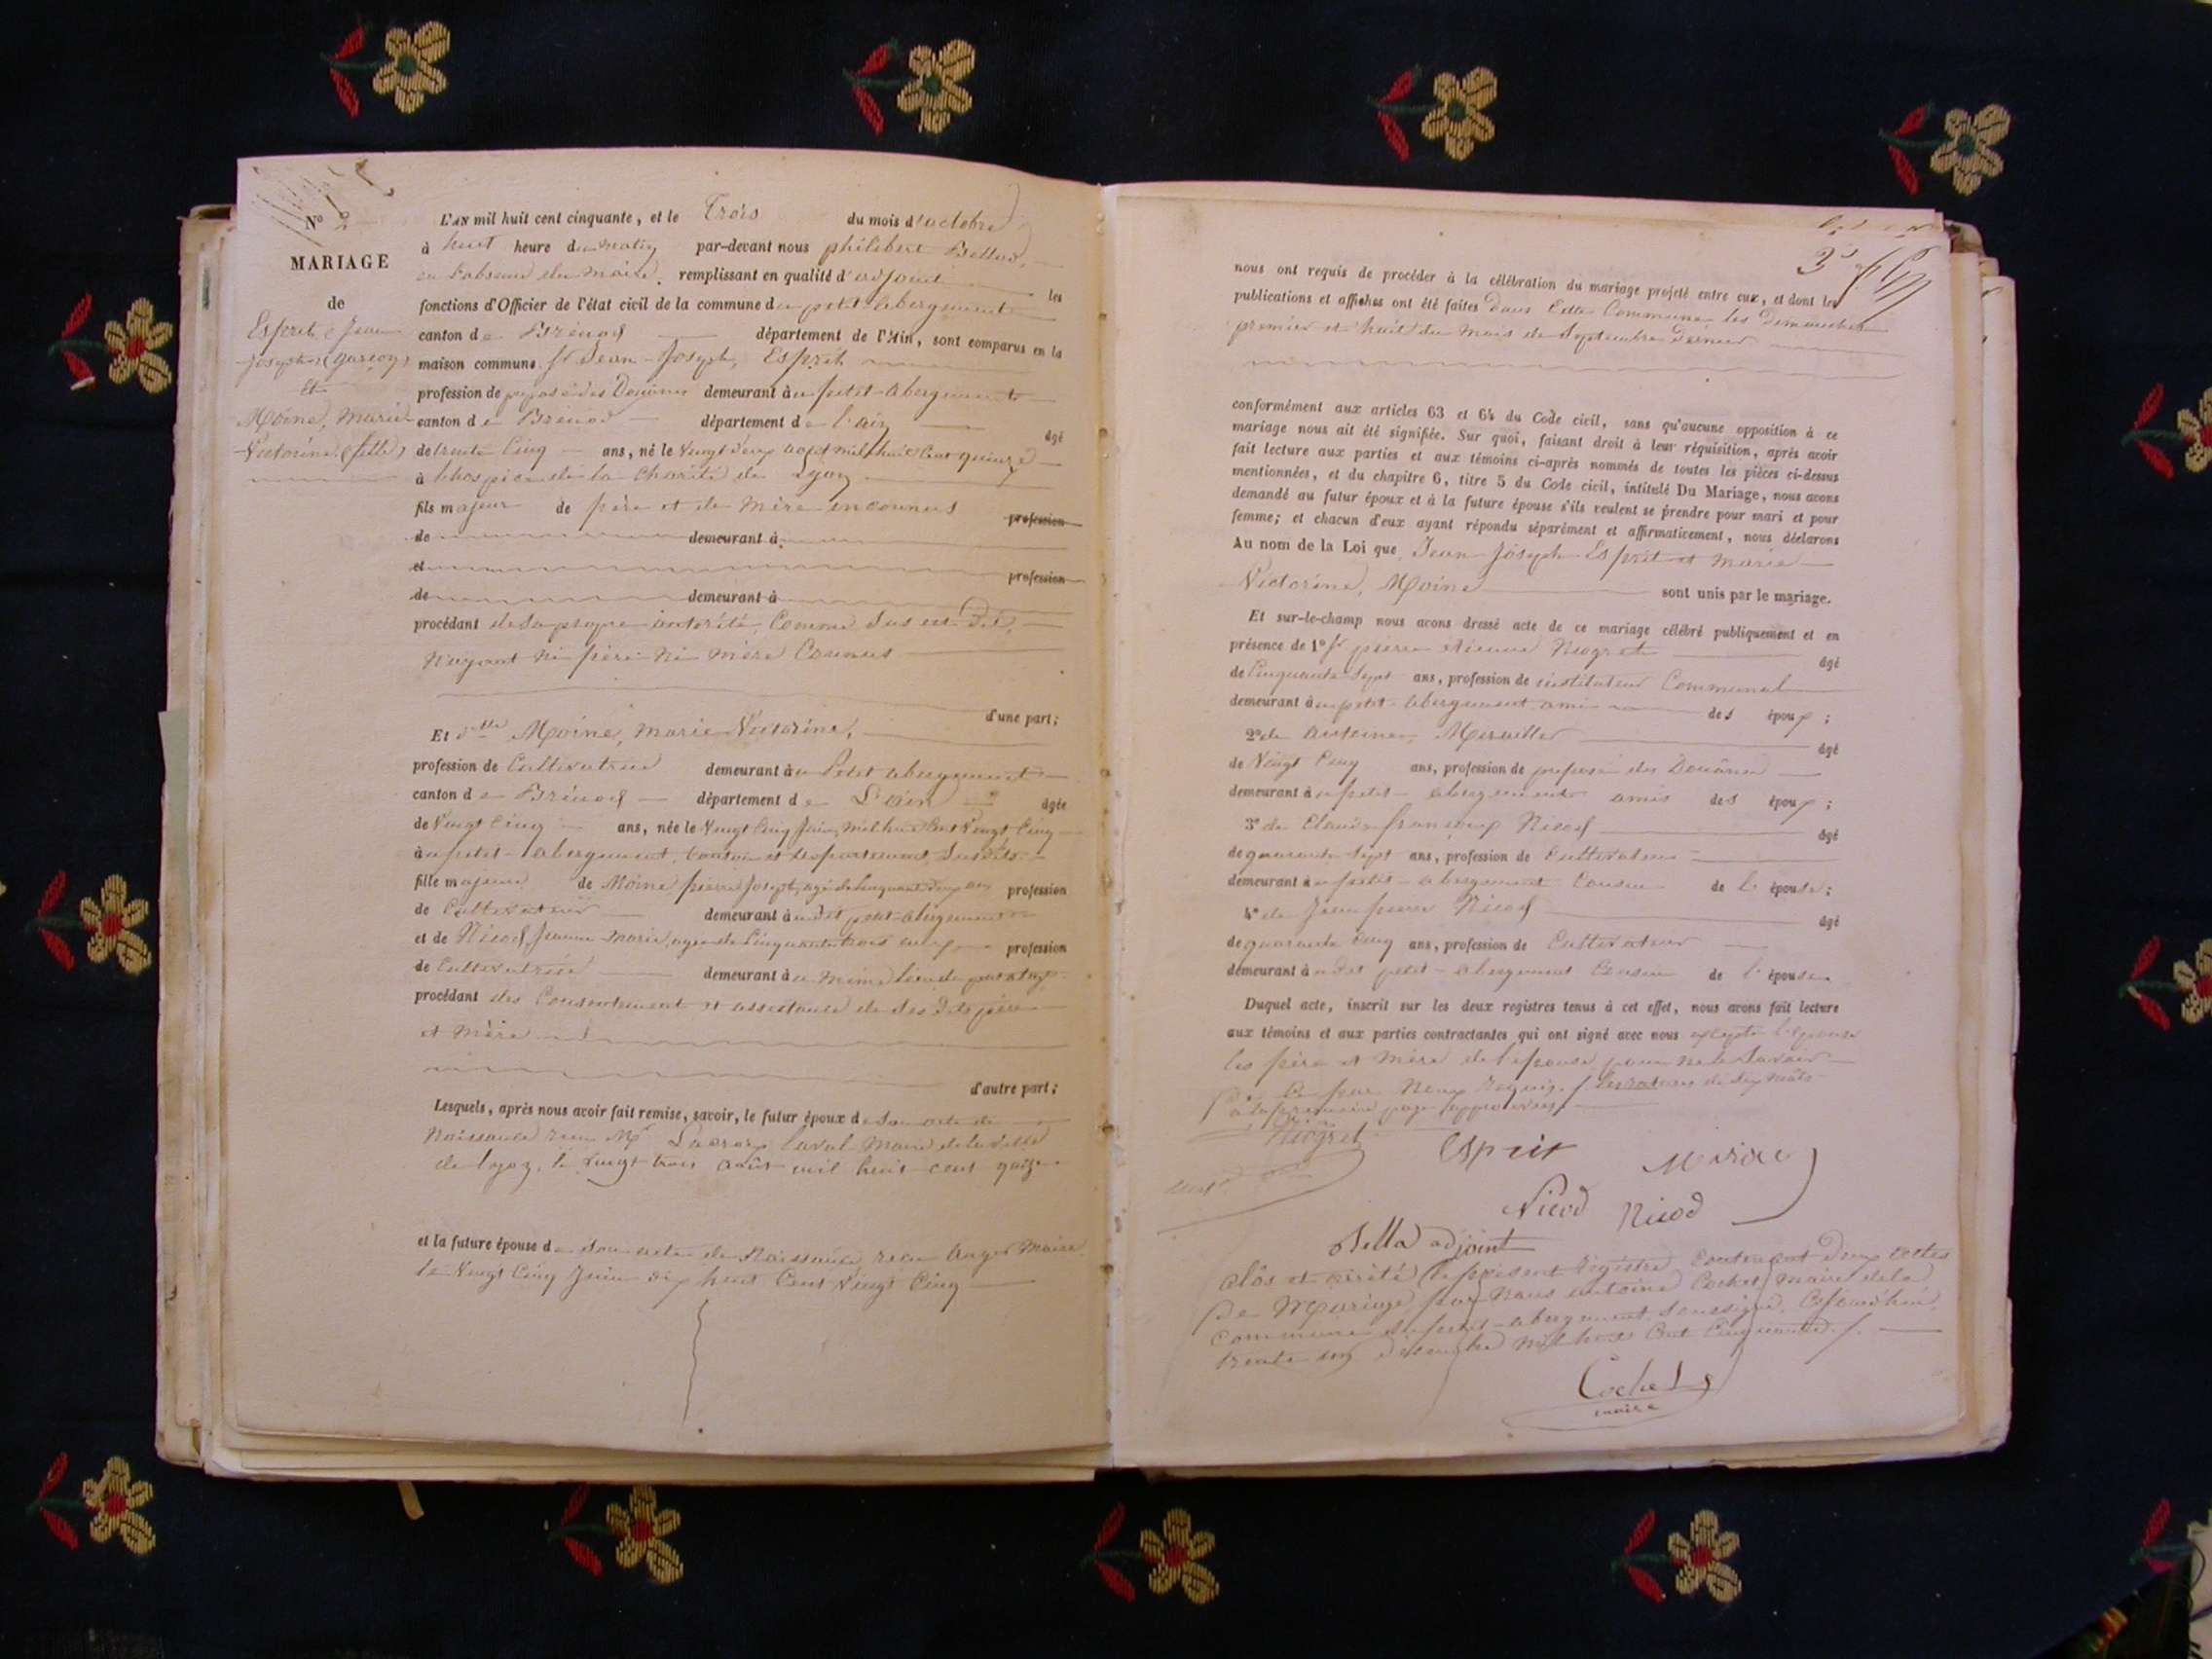 N° 2
MARIAGE
de
Esprit, Jean
Joseph (garçon)
Et
Moine, Marie
Victorine (fille)
L'AN mil huit cent cinquante, et le Trois du mois d'octobre
à huit heure du matin par-devant nous philibert Bellod,
en l'absence du maire, remplissant en qualité d'adjoint les
fonctions d'Officier de l'état civil de la commune du petit abergement
canton de Brénod département de l'Ain, sont comparus en la
maison commune Sr Jean-Joseph, Esprit
profession de préposé des Douanes demeurant au petit-abergement
canton de Brénod département de l'ain âgé
de trente Cinq ans, né le Vingt deux août mil huit Cent quinze
à l'hospice de la Charité de Lyon
fils majeur de père et de mère inconnus profession
de demeurant à
et profession
de demeurant à
procédant de sa propre autorité, Comme sus est dit,
N'ayant ni père ni mère Connus
d'une part;
Et dlle Moine, Marie Victorine,
profession de Cultivatrice demeurant au Petit abergement
canton de Brénod département de L'ain âgée
de Vingt Cinq ans, née le Vingt Cinq Juin mil huit Cent Vingt Cinq
au petit-abergement, Canton et département susdits
fille majeure de Moine pierre Joseph, agé de Cinquante deux ans profession
de Cultivateur demeurant audit petit-abergement
et de Nicod, Jeanne-Marie, agée de Cinquante trois ans profession
de Cultivatrice demeurant au même lieu du petit aberg.
procédant des Consentement et assistance de ses dits père
et Mère
d'autre part;
Lesquels, après nous avoir fait remise, savoir, le futur époux de son acte de
Naissance reçu Mr Lacroix Laval Maire de la Ville
de Lyon, le vingt trois août mil huit cent quinze
et la future épouse de son acte de Naissance reçu Maire
le Vingt Cinq Juin dix huit Cent Vingt Cinq
nous ont requis de procéder à la célébration du mariage projeté entre eux, et dont les
publications et affiches ont été faites dans Cette Commune les Dimanches
premier et huit du mois de Septembre Dernier
conformément aux articles 63 et 64 du Code civil, sans qu'aucune opposition à ce
mariage nous ait été signifiée. Sur quoi, faisant droit à leur réquisition, après avoir
fait lecture aux parties et aux témoins ci-après nommés de toutes les pièces ci-dessus
mentionnées, et du chapitre 6, titre 5 du Code civil, intitulé Du Mariage, nous avons
demandé au futur époux et à la future épouse s'ils veulent se prendre pour mari et pour
femme; et chacun d'eux ayant répondu séparément et affirmativement, nous déclarons
Au nom de la Loi que Jean Joseph Esprit et Marie
Victorine, Moine sont unis par le mariage.
Et sur-le-champ nous avons dressé acte de ce mariage célébré publiquement et en
présence de 1° Sr pierre étienne Neyret âgé
de Cinquante Sept ans, profession de instituteur Communal
demeurant au petit-abergement ami des époux;
2° de antoine âgé
de Vingt Cinq ans, profession de préposé des Douanes
demeurant au petit-abergement amis des époux;
3° de Claude françois Nicod âgé
de quarante Sept ans, profession de Cultivateur
demeurant au petit-abergement Cousin de l'épouse;
4° de Jean pierre Nicod âgé
de quarante Cinq ans, profession de Cultivateur
demeurant audit petit-abergement Cousin de l'épouse
Duquel acte, inscrit sur les deux registres tenus à cet effet, nous avons fait lecture
aux témoins et aux parties contractantes qui ont signé avec nous excepté l'épouse
les père et mère de l'épouse pour ne le Savoir
de Ce par Nous requis.
à la première page approuvées
Esprit
Nicod Nicod
Bellod adjoint
Clos et arrêté le présent registre Contenant deux actes
de Mariage par Nous antoine Cochet, maire de la
Commune du petit-abergement, soussigné, Ce jourd'hui
trente un décembre mil huit Cent Cinquante.
Cochet
maire